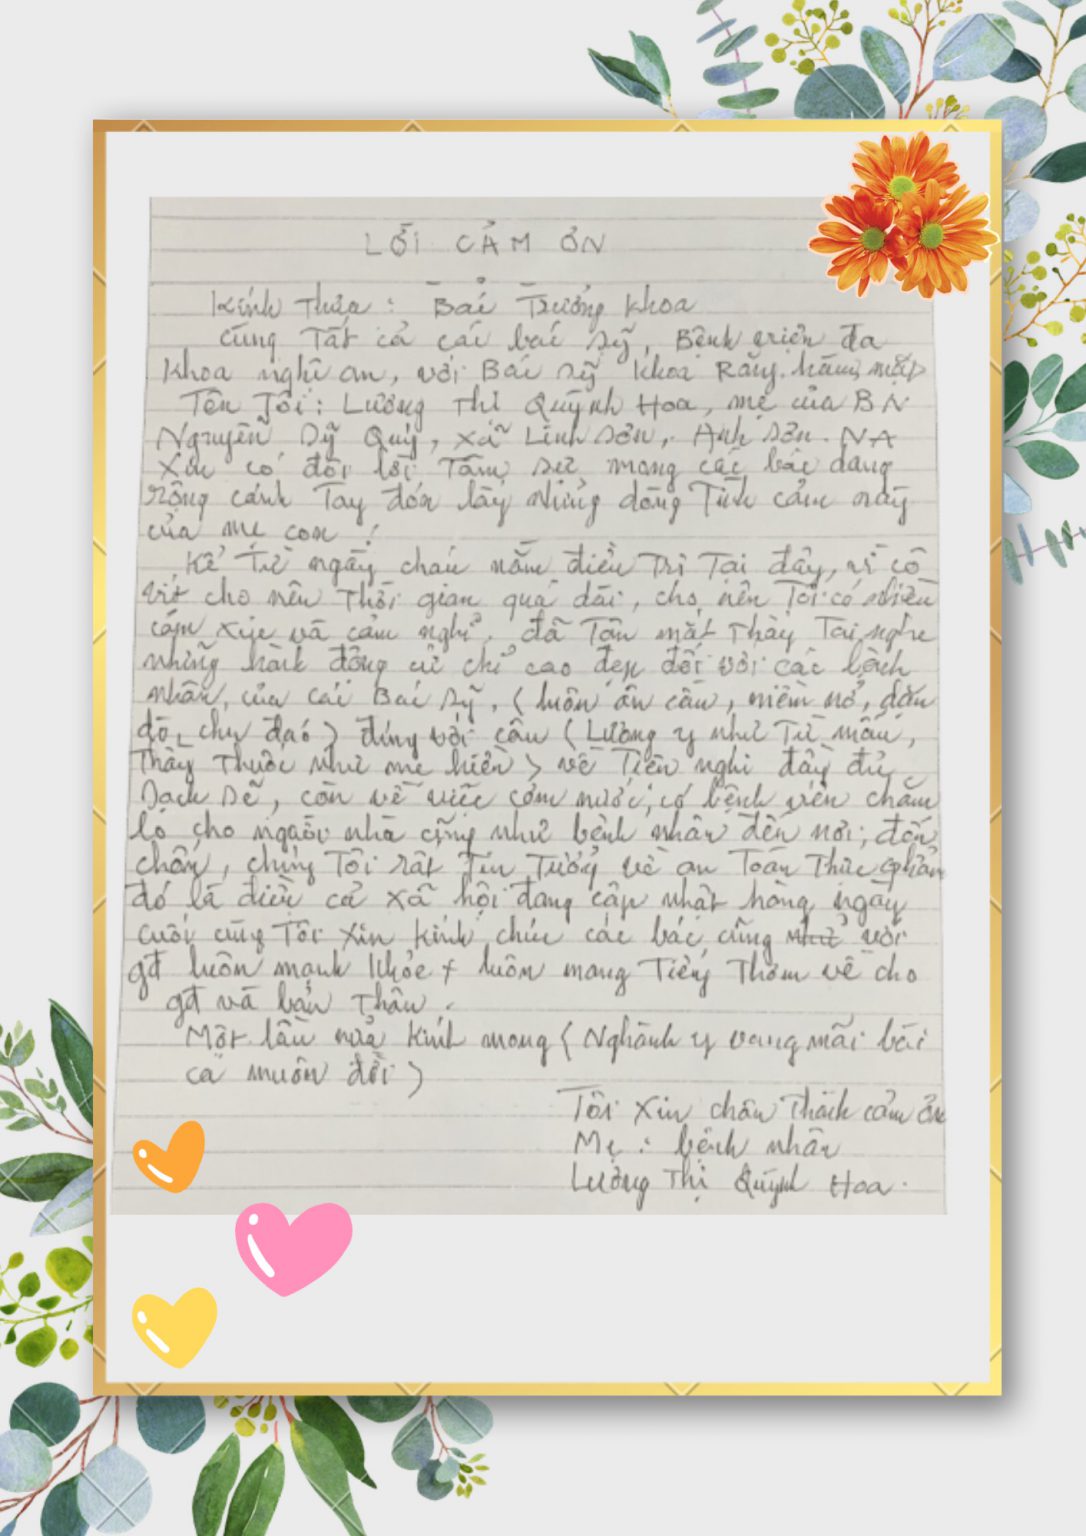 LỜI CẢM ƠN
Kính Thưa: Bác Trưởng khoa
cùng Tất cả các bác sỹ, Bệnh viện đa
khoa nghệ an, với Bác sỹ khoa Răng. hàm, mặt
Tên Tôi: Lương Thị Quỳnh Hoa, mẹ của BN
Nguyễn Sỹ Quý, xã Lĩnh Sơn, Anh Sơn. NA
Xin có đôi lời Tâm sự mong các bác dang
rộng cánh Tay đón lấy những dòng Tình cảm này
của mẹ con!
Kể Từ ngày cháu nằm điều Trị Tại đây, vì
cho nên Thời gian quá dài, cho nên Tôi có nhiều
cảm xúc và cảm nghĩ. đã Tận mắt Thấy Tai nghe
những hành động cử chỉ cao đẹp đối với các bệnh
nhân, của các Bác Sỹ, (luôn ân cần, niềm nở, dặn
dò, chu đáo) đúng với câu (Lương y như Từ mẫu,
Thầy Thuốc như mẹ hiền) về Tiện nghi đầy đủ
sạch sẽ, còn về việc cơm nước; có bệnh viện chăm
lo cho người nhà cũng như bệnh nhân đến nơi; đến
chốn, chúng Tôi rất Tin Tưởng về an Toàn Thực phẩm
đó là điều cả xã hội đang cập nhật hàng ngày
cuối cùng Tôi xin kính chúc các bác cùng như với
gđ luôn mạnh khỏe + luôn mang Tiếng Thơm về cho
gđ và bản Thân.
Một lần nữa kính mong (Nghành y vang mãi bài
ca muôn đời)
Tôi xin chân Thành cảm ơn
Mẹ: bệnh nhân
Lương Thị Quỳnh Hoa.